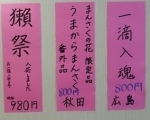 一滴入魂
800円
広島
まんさくの花 限定品
うまからまんさく
番外品
800円
秋田
獺祭
入荷しました
980円